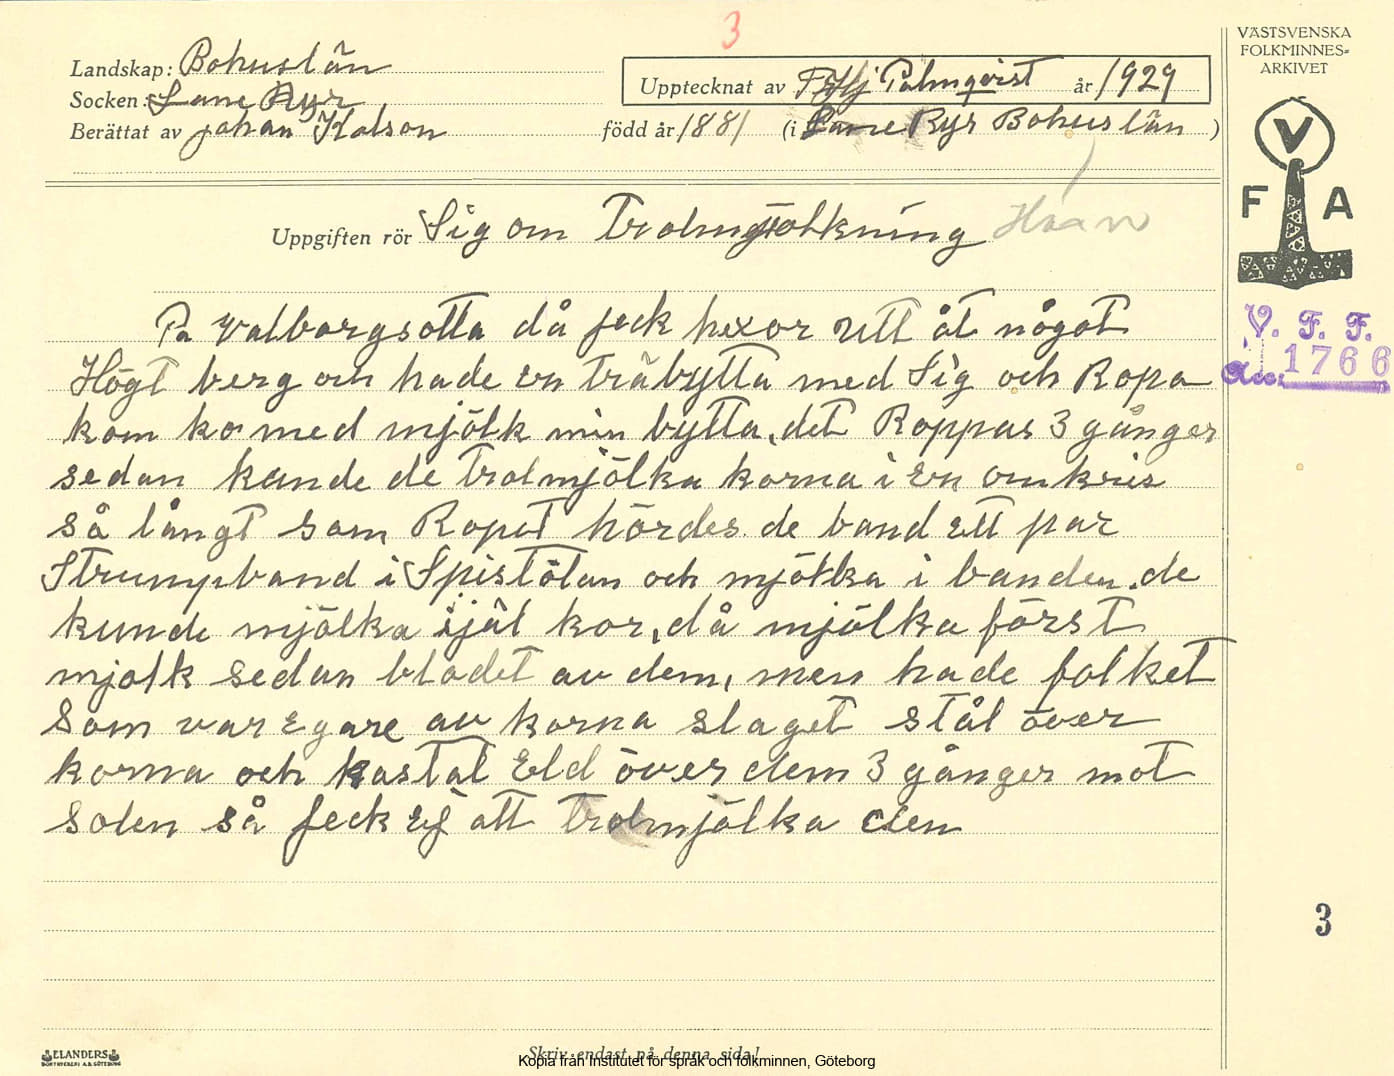 3
VÄSTSVENSKA
FOLKMINNES=
ARKIVET
Landskap: Bohuslän
Upptecknat av Hj Palmqvist år 1929
Socken: Lane Ryr
Berättat av johan Kalson född år 1881 (i Lane Ryr Bohuslän )
V
F A
Uppgiften rör Sig om Trolmjölkning
V. F. F.
Acc. 1766
Pa Valborgsotta då feck hexor utt åt något
Högt berg och hade en träbytta med Sig och Ropa
kom ko med mjölk min bytta, det Roppas 3 gånger
sedan kunde de trolmjölka korna i en omkris
så långt som Ropet hördes. de band ett par
Strumpband i Spistölan och mjölka i banden. de
kunde mjölka ijäl kor, då mjölka först
mjolk sedan blodet av dem, men hade folket
Som var egare av korna slaget stål över
korna och kastat Eld över dem 3 gånger mot
solen så feck Ej att trolmjölka dem
3
ELANDERS
BOKTRYCKERI A.B. GÖTEBORG
Skriv endast på denna sida!
Kopia från Institutet för språk och folkminnen, Göteborg